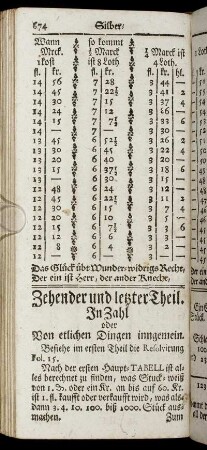 674 Silber.
Wann so kommt
Mrck. ½ Marck ¼ Marck ist
1 kost ist 8 Loth 4 Loth.
fl. kr. fl. kr. fl. kr. hl.
14 56 7 28 3 44 —
14 45 7 22½ 3 41 —
14 30 7 15 3 37 2
14 24 7 12 3 36 —
14 15 7 7½ 3 33 3
14 — 7 — 3 30 —
13 45 6 52½ 3 26 1
13 30 6 45 3 22 2
13 20 6 40 3 20 —
13 15 6 37½ 3 18 3
13 — 6 30 3 15 —
12 48 6 24 3 12 —
12 45 6 22½ 3 11 1
12 30 6 15 3 7 2
12 15 6 7½ 3 3 3
12 12 6 6 3 3 —
12 8 6 4 3 2 —
12 — 6 — 3 — —
Das Glück übt Wunder-widrigs Recht,
Der ein ist Herr, der ander Knecht,
Zehender und letzter Theil.
In Zahl
oder
Von etlichen Dingen inngemein.
Besiehe im ersten Theil die Resolvirung
Fol. 15.
Nach der ersten Haupt-TABELL ist al-
les berechnet zu finden, was Stuck-weiß
von 1. biß oder ein Kr. an bis auf 60. Kr.
ist 1. fl. kaufft oder verkaufft wird, was als-
dann 3. 4. 10. 100. biß 1000. Stück aus-
machen. Zum